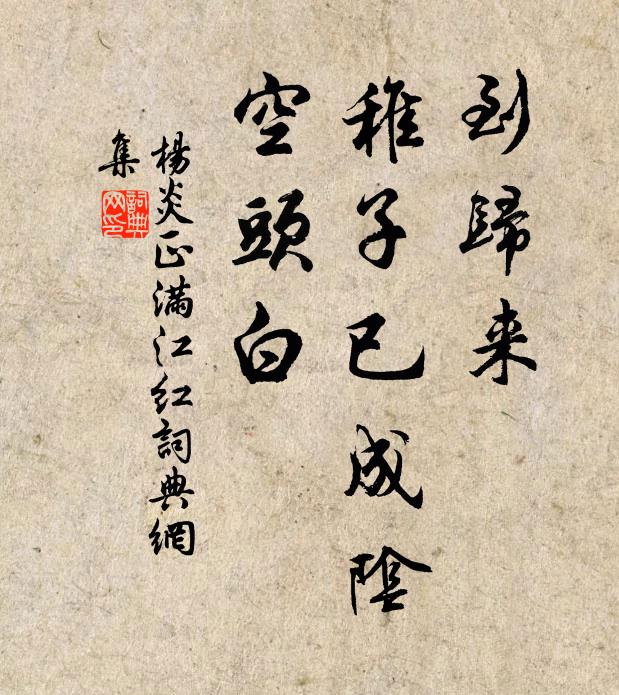 到歸来
稚子已成陰
空頭白
楊炎正满江红詞典網
集
詞典
网印